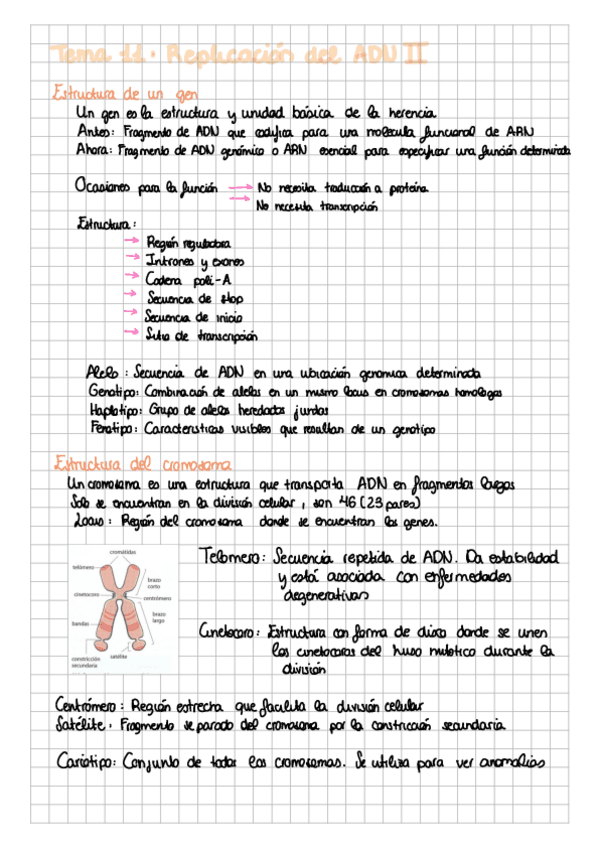 Tema 11: Replicación del ADN II
Estructura de un gen
Un gen es la estructura y unidad básica de la herencia
Antes: Fragmento de ADN que codifica para una molécula funcional de ARN
Ahora: Fragmento de ADN genómico o ARN esencial para especificar una función determinada
Ocasiones para la función → No necesita traducción a proteína
→ No necesita transcripción
Estructura:
→ Región reguladora
→ Intrones y exones
→ Cadena poli-A
→ Secuencia de stop
→ Secuencia de inicio
→ Sitio de transcripción
Alelo: Secuencia de ADN en una ubicación genómica determinada
Genotipo: Combinación de alelos en un mismo locus en cromosomas homólogos
Haplotipo: Grupo de alelos heredados juntos
Fenotipo: Características visibles que resultan de un genotipo
Estructura del cromosoma
Un cromosoma es una estructura que transporta ADN en fragmentos largos
Solo se encuentran en la división celular, son 46 (23 pares)
Locus: Región del cromosoma donde se encuentran los genes.
cromátidas
telómero
brazo
corto
cinetocoro
centrómero
brazo
largo
bandas
constricción
secundaria
satélite
Telómero: Secuencia repetida de ADN. Da estabilidad
y está asociada con enfermedades
degenerativas
Cinetocoro: Estructura con forma de disco donde se unen
los cinetocoros del huso mitótico durante la
división
Centrómero: Región estrecha que facilita la división celular
Satélite: Fragmento separado del cromosoma por la constricción secundaria
Cariotipo: Conjunto de todos los cromosomas. Se utiliza para ver anomalías